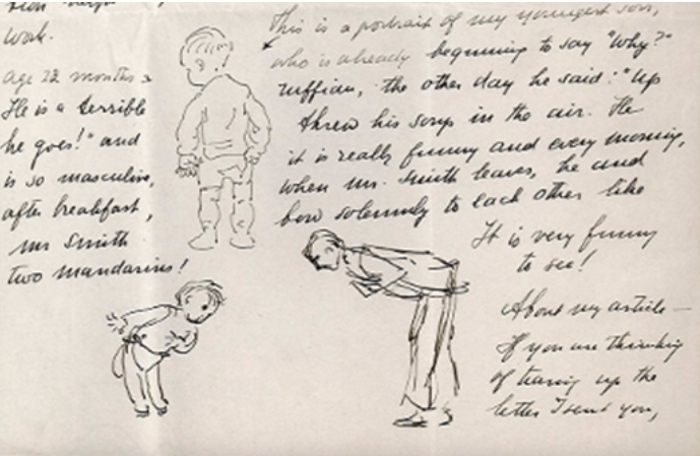 work.
This is a portrait of my youngest son,
age 22 months &
who is already beginning to say "Why?"
He is a terrible
ruffian, the other day he said: "Up
he goes!" and
threw his soup in the air. He
is so masculine,
it is really funny and every morning,
after breakfast,
when Mr. Smith leaves, he and
Mr Smith
bow solemnly to each other like
two mandarins!
It is very funny
to see!
About my article —
If you are thinking
of tearing up the
letter I sent you,